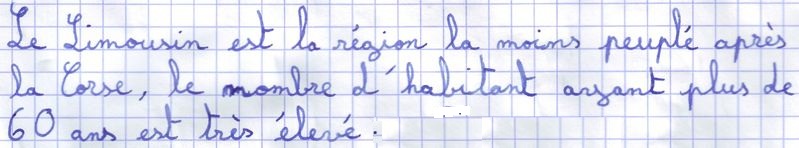 Le Limousin est la région la moins peuplé après
la Corse, le nombre d'habitant ayant plus de
60 ans est très élevé.